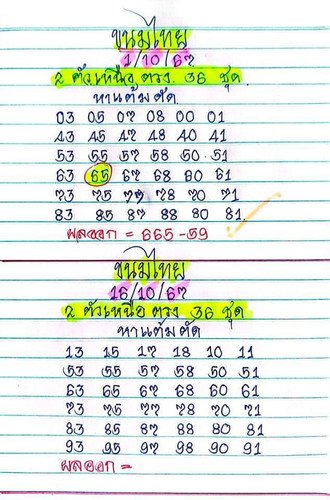 ขนมไทย
1/10/67
2 ตัวเหนือ ตรง. 36 ชุด
หาแต้มตัด
03 05 07 08 00 01
43 45 47 48 40 41
53 55 57 58 50 51
63 65 67 68 60 61
73 75 77 78 70 71
83 85 87 88 80 81
ผลออก = 665-59
ขนมไทย
16/10/67
2 ตัวเหนือ ตรง 36 ชุด
หาแต้มตัด
13 15 17 18 10 11
53 55 57 58 50 51
63 65 67 68 60 61
73 75 77 78 70 71
83 85 87 88 80 81
93 95 97 98 90 91
ผลออก =